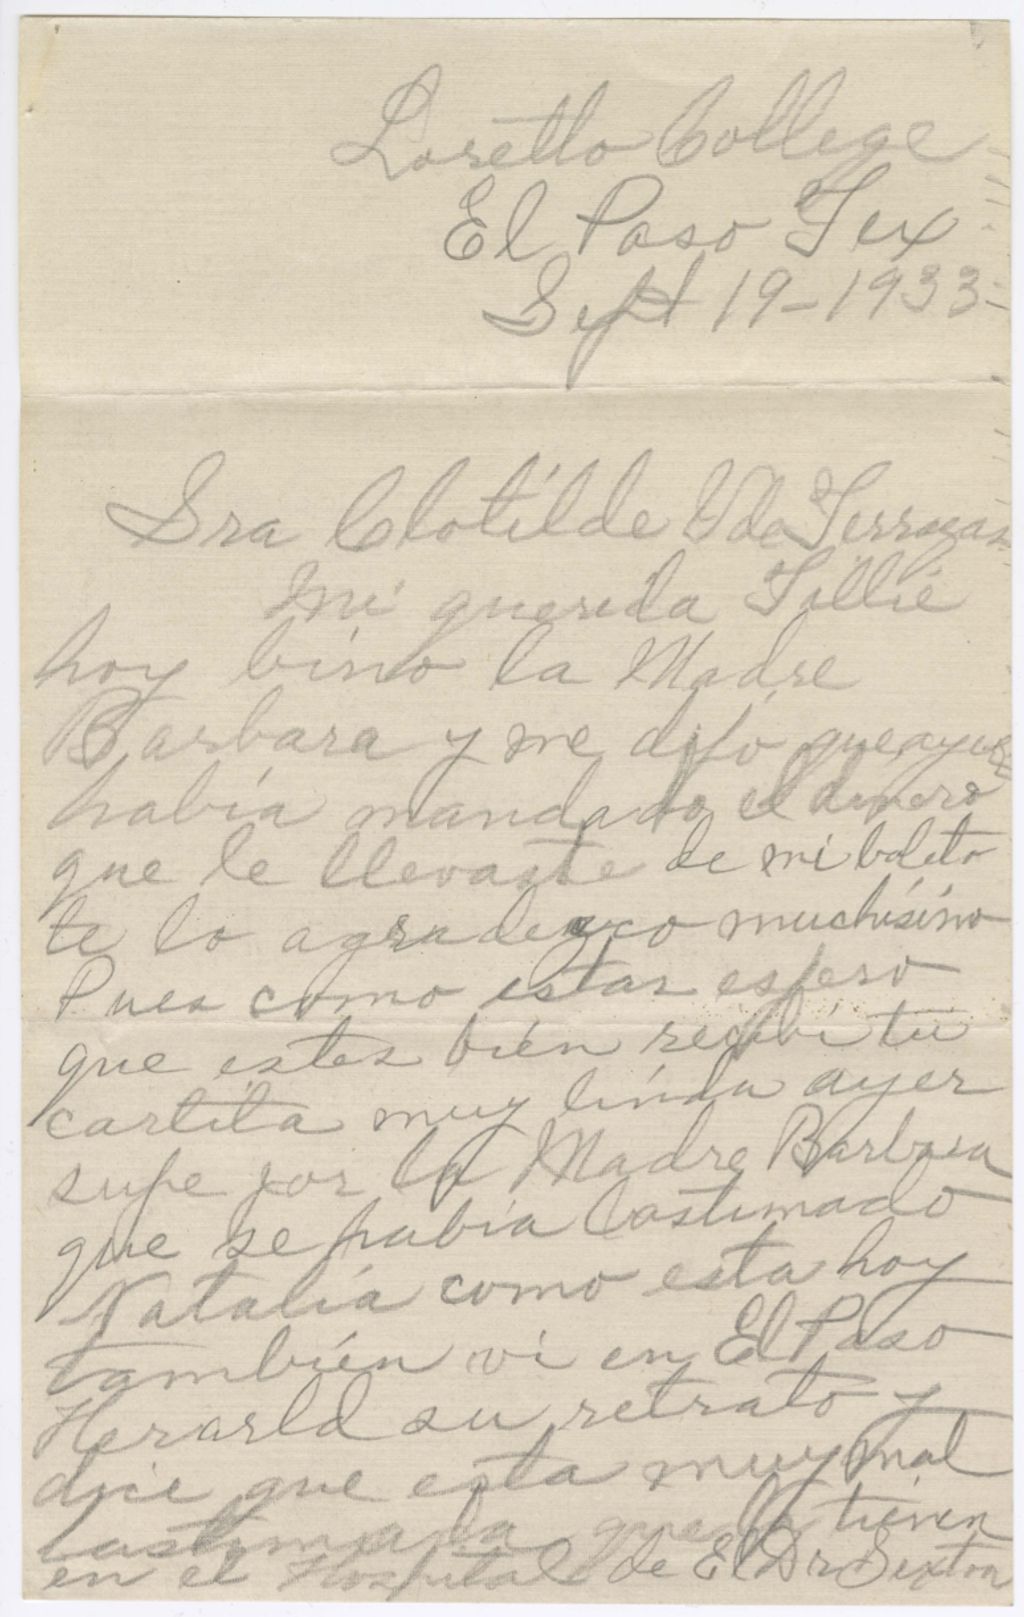 Loretto College
El Paso Tex
Sept 19-1933-
Sra Clotilde Vda Terrazas
Mi querida Tillie
hoy bino la Madre
Barbara y me dijó que ayer
había mandado el dinero
que le llevaste de mi boleto
te lo agradezco muchísimo
Pues como estas espero
que estes bien recibi tú
cartita muy linda ayer
supe por la Madre Barbara
que se había lastimado
Natalia como esta hoy
también vi en El Paso
Herarld su retrato y
dice que esta muy mal
lastimada que la tienen
en el Hospital de El Dr Sexton